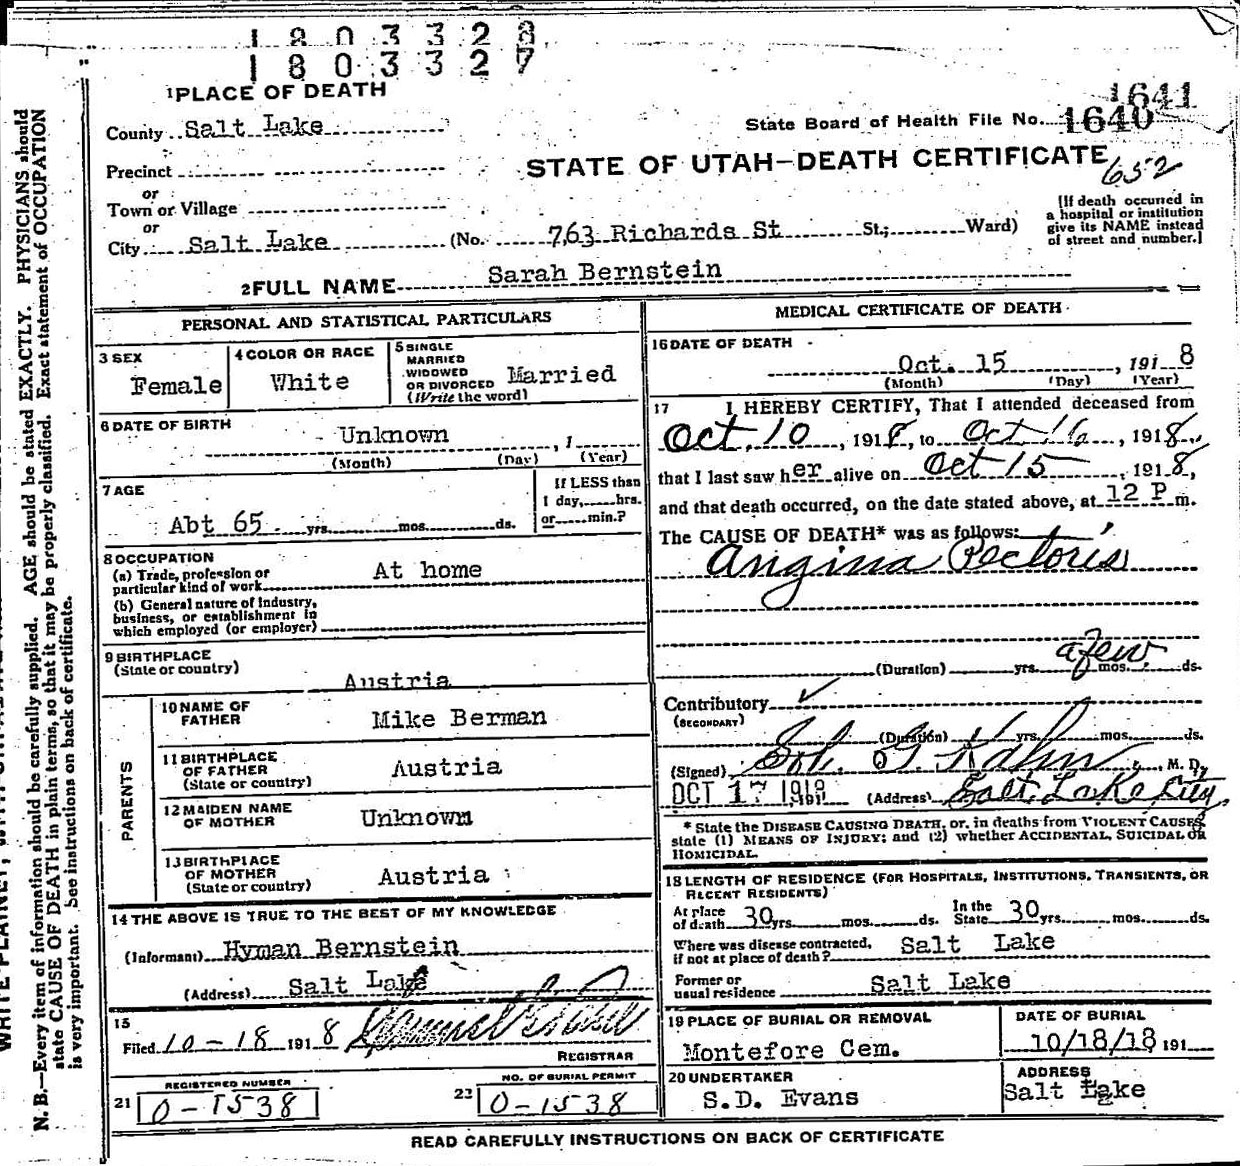 1803328
1803327
1 PLACE OF DEATH
County Salt Lake
State Board of Health File No. 1641
1640
Precinct
STATE OF UTAH—DEATH CERTIFICATE
652
or
Town or Village
or
City Salt Lake (No. 763 Richards St St.; Ward)
[If death occurred in
a hospital or institution
give its NAME instead
of street and number.]
2 FULL NAME Sarah Bernstein
PERSONAL AND STATISTICAL PARTICULARS
3 SEX
Female
4 COLOR OR RACE
White
5 SINGLE
MARRIED
WIDOWED
OR DIVORCED
(Write the word)
Married
6 DATE OF BIRTH
Unknown , 1
(Month) (Day) (Year)
7 AGE
Abt 65 yrs. mos. ds.
If LESS than
1 day, hrs.
or min.?
8 OCCUPATION
(a) Trade, profession or
particular kind of work At home
(b) General nature of industry,
business, or establishment in
which employed (or employer)
9 BIRTHPLACE
(State or country)
Austria
PARENTS
10 NAME OF
FATHER
Mike Berman
11 BIRTHPLACE
OF FATHER
(State or country)
Austria
12 MAIDEN NAME
OF MOTHER
Unknown
13 BIRTHPLACE
OF MOTHER
(State or country)
Austria
14 THE ABOVE IS TRUE TO THE BEST OF MY KNOWLEDGE
(Informant) Hyman Bernstein
(Address) Salt Lake
15
Filed 10-18 1918
REGISTRAR
REGISTERED NUMBER
21 0-1538
NO. OF BURIAL PERMIT
22 0-1538
MEDICAL CERTIFICATE OF DEATH
16 DATE OF DEATH
Oct. 15 , 1918
(Month) (Day) (Year)
17 I HEREBY CERTIFY, That I attended deceased from
Oct. 10 , 1918, to Oct 16 , 1918,
that I last saw her alive on Oct 15 , 1918,
and that death occurred, on the date stated above, at 12 P m.
The CAUSE OF DEATH* was as follows:
Angina Pectoris
(Duration) yrs. a few mos. ds.
Contributory
(SECONDARY)
(Duration) yrs. mos. ds.
(Signed) Sol. G. Kahn , M. D.
OCT 17 1918 191 (Address) Salt Lake City.
* State the DISEASE CAUSING DEATH, or, in deaths from VIOLENT CAUSES,
state (1) MEANS OF INJURY; and (2) whether ACCIDENTAL, SUICIDAL OR
HOMICIDAL.
18 LENGTH OF RESIDENCE (FOR HOSPITALS, INSTITUTIONS, TRANSIENTS, OR
RECENT RESIDENTS)
At place
of death 30 yrs. mos. ds.
In the
State 30 yrs. mos. ds.
Where was disease contracted,
if not at place of death? Salt Lake
Former or
usual residence Salt Lake
19 PLACE OF BURIAL OR REMOVAL
Montefore Cem.
DATE OF BURIAL
10/18/18 191
20 UNDERTAKER
S.D. Evans
ADDRESS
Salt Lake
READ CAREFULLY INSTRUCTIONS ON BACK OF CERTIFICATE
N. B.—Every item of information should be carefully supplied. AGE should be stated EXACTLY. PHYSICIANS should
state CAUSE OF DEATH in plain terms, so that it may be properly classified. Exact statement of OCCUPATION
is very important. See instructions on back of certificate.